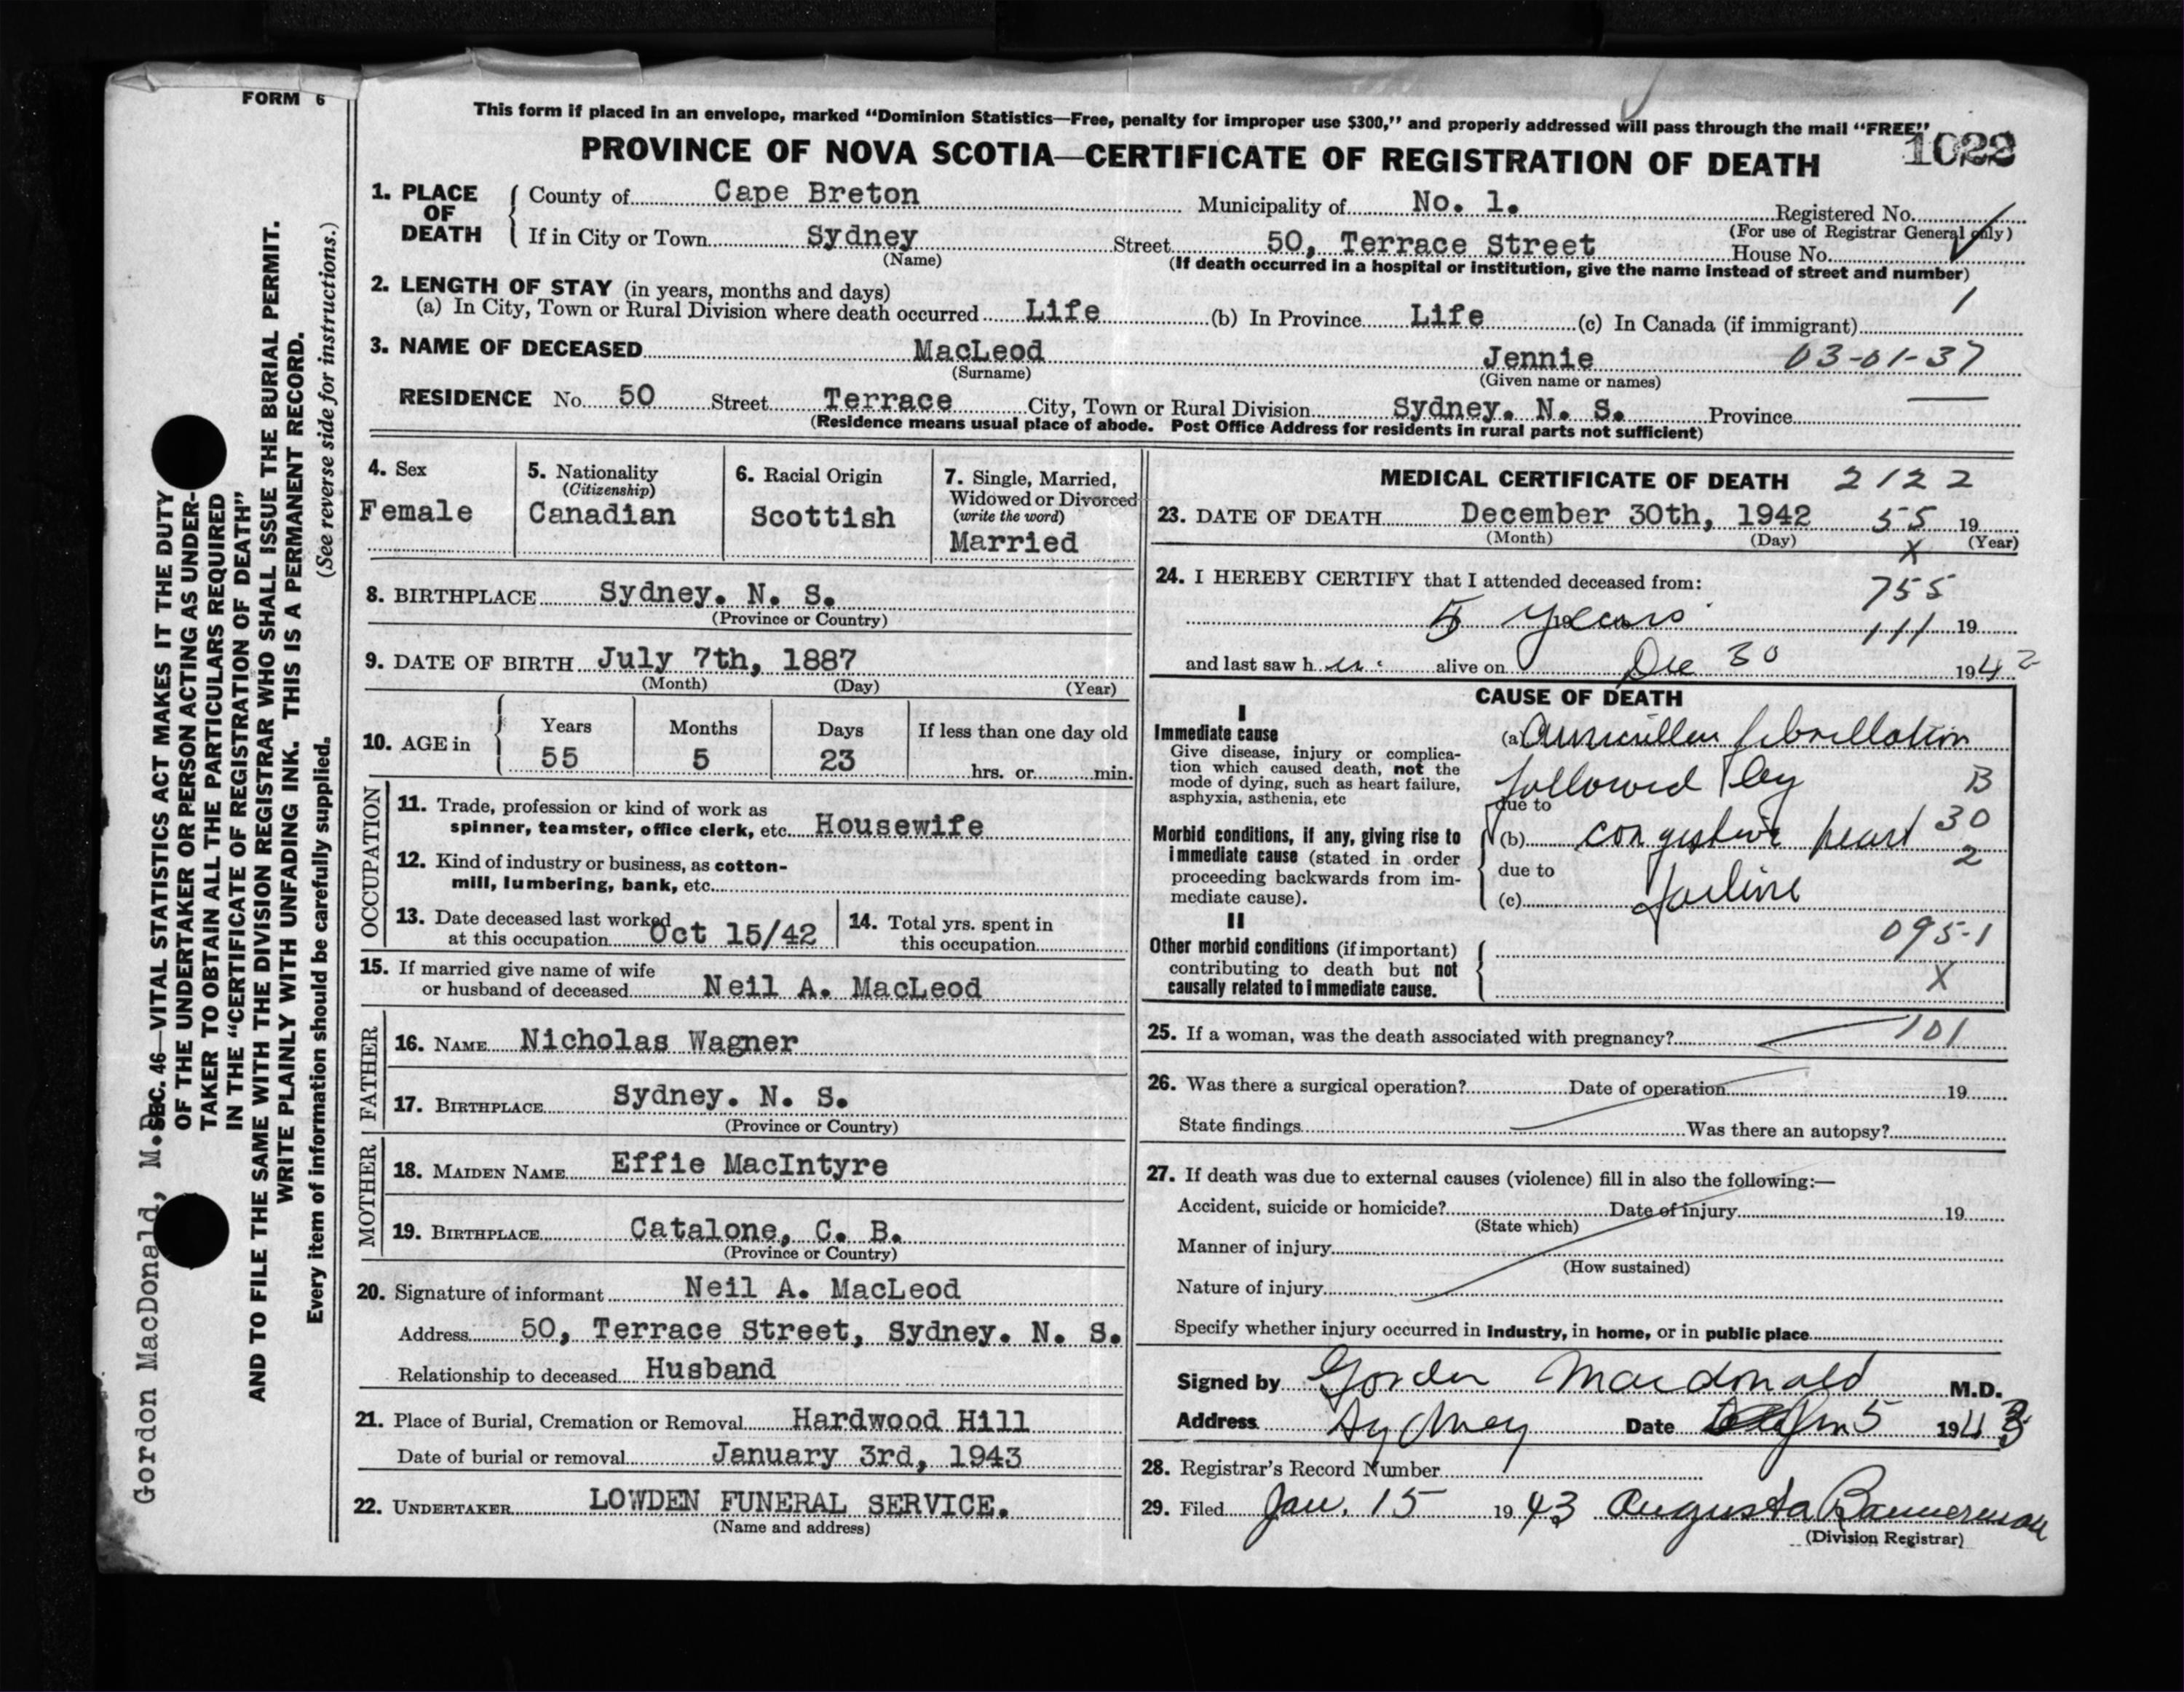 FORM 6
This form if placed in an envelope, marked "Dominion Statistics—Free, penalty for improper use $300," and properly addressed will pass through the mail "FREE"
PROVINCE OF NOVA SCOTIA—CERTIFICATE OF REGISTRATION OF DEATH
1022
1. PLACE OF DEATH
County of Cape Breton Municipality of No. 1. Registered No.
(For use of Registrar General only)
If in City or Town Sydney Street 50, Terrace Street House No.
(Name) (If death occurred in a hospital or institution, give the name instead of street and number)
2. LENGTH OF STAY (in years, months and days)
(a) In City, Town or Rural Division where death occurred Life (b) In Province Life (c) In Canada (if immigrant) 1
3. NAME OF DECEASED MacLeod Jennie 03-01-37
(Surname) (Given name or names)
RESIDENCE No. 50 Street Terrace City, Town or Rural Division Sydney. N. S. Province
(Residence means usual place of abode. Post Office Address for residents in rural parts not sufficient)
4. Sex
Female
5. Nationality
(Citizenship)
Canadian
6. Racial Origin
Scottish
7. Single, Married,
Widowed or Divorced
(write the word)
Married
8. BIRTHPLACE Sydney. N. S.
(Province or Country)
9. DATE OF BIRTH July 7th, 1887
(Month) (Day) (Year)
10. AGE in
Years Months Days If less than one day old
55 5 23 hrs. or min.
OCCUPATION
11. Trade, profession or kind of work as
spinner, teamster, office clerk, etc. Housewife
12. Kind of industry or business, as cotton-
mill, lumbering, bank, etc.
13. Date deceased last worked
at this occupation Oct 15/42
14. Total yrs. spent in
this occupation
15. If married give name of wife
or husband of deceased Neil A. MacLeod
FATHER
16. NAME Nicholas Wagner
17. BIRTHPLACE Sydney. N. S.
(Province or Country)
MOTHER
18. MAIDEN NAME Effie MacIntyre
19. BIRTHPLACE Catalone, C. B.
(Province or Country)
20. Signature of informant Neil A. MacLeod
Address 50, Terrace Street, Sydney. N. S.
Relationship to deceased Husband
21. Place of Burial, Cremation or Removal Hardwood Hill
Date of burial or removal January 3rd, 1943
22. UNDERTAKER LOWDEN FUNERAL SERVICE.
(Name and address)
MEDICAL CERTIFICATE OF DEATH 2122
23. DATE OF DEATH December 30th, 1942 55 19
(Month) (Day) X (Year)
24. I HEREBY CERTIFY that I attended deceased from: 755
5 years 19 111 19
and last saw her alive on Dec 30 1942
CAUSE OF DEATH
I
Immediate cause
Give disease, injury or complica-
tion which caused death, not the
mode of dying, such as heart failure,
asphyxia, asthenia, etc
(a) Auricullar fibrillation
followed by B
due to
Morbid conditions, if any, giving rise to
immediate cause (stated in order
proceeding backwards from im-
mediate cause).
(b) congestive heart 30
2
due to
(c) failure
II
Other morbid conditions (if important)
contributing to death but not
causally related to immediate cause.
095-1
X
25. If a woman, was the death associated with pregnancy? 101
26. Was there a surgical operation? Date of operation 19
State findings Was there an autopsy?
27. If death was due to external causes (violence) fill in also the following:—
Accident, suicide or homicide? Date of injury 19
(State which)
Manner of injury
(How sustained)
Nature of injury
Specify whether injury occurred in industry, in home, or in public place
Signed by Gordon Macdonald M.D.
Address Sydney Date Jan 5 1943
28. Registrar's Record Number
29. Filed Jan. 15 1943 Augusta Bannerman
(Division Registrar)
Gordon MacDonald, M.D.
SEC. 46—VITAL STATISTICS ACT MAKES IT THE DUTY
OF THE UNDERTAKER OR PERSON ACTING AS UNDER-
TAKER TO OBTAIN ALL THE PARTICULARS REQUIRED
IN THE "CERTIFICATE OF REGISTRATION OF DEATH"
AND TO FILE THE SAME WITH THE DIVISION REGISTRAR WHO SHALL ISSUE THE BURIAL PERMIT.
WRITE PLAINLY WITH UNFADING INK. THIS IS A PERMANENT RECORD.
Every item of information should be carefully supplied. (See reverse side for instructions.)